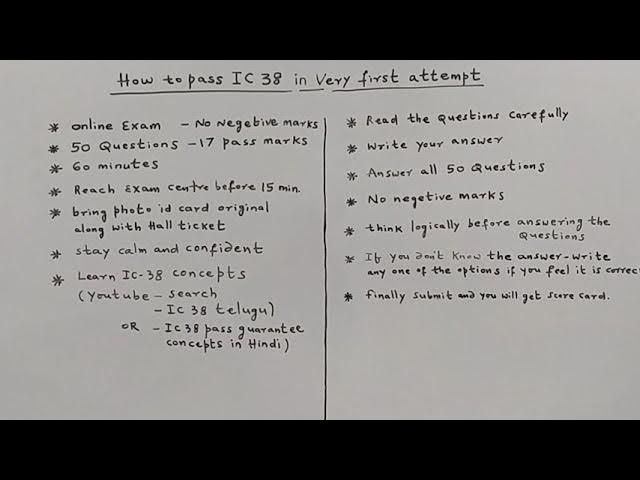 How to pass IC 38 in Very first attempt
* online Exam - No negetive marks
* 50 Questions - 17 pass marks
* 60 minutes
* Reach Exam centre before 15 min.
* bring photo id card original
along with Hall ticket
* stay calm and confident
* Learn IC-38 concepts
(Youtube - search
- IC 38 telugu)
OR - IC 38 pass guarantee
concepts in Hindi)
* Read the Questions carefully
* Write your answer
* Answer all 50 Questions
* No negetive marks
* think logically before answering the
Questions
* If you don't know the answer - write
any one of the options if you feel it is correct
* finally submit and you will get score card.